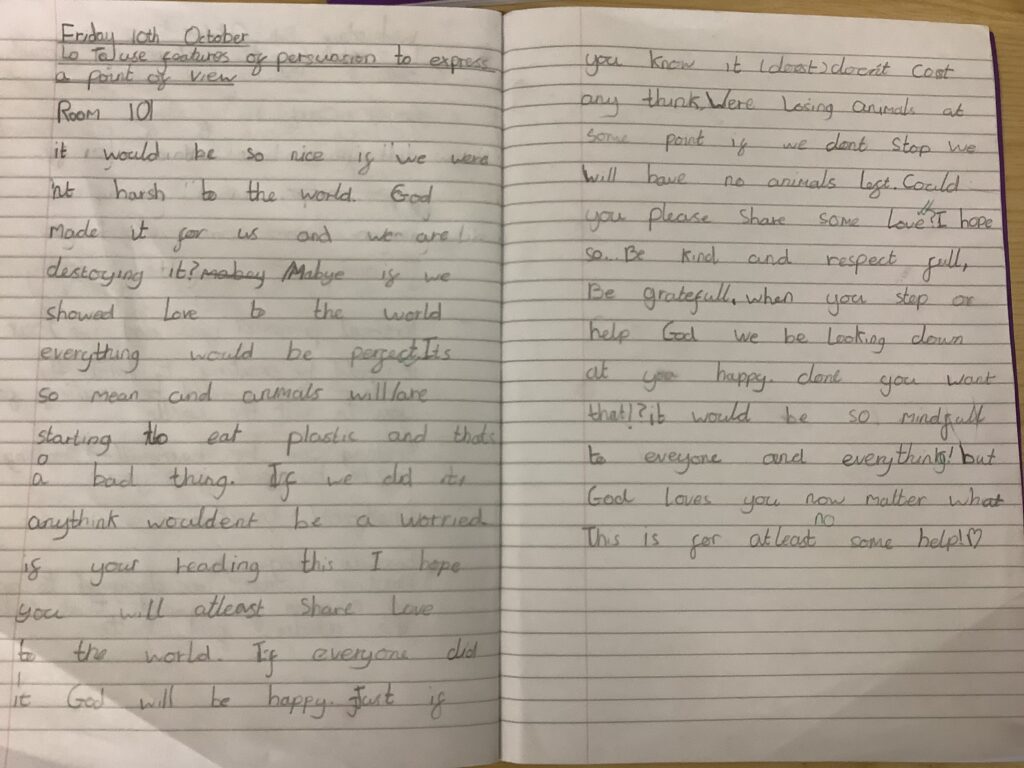 Friday 10th October
Lo To use features of persuasion to express
a point of view
Room 101
it would be so nice if we were
nt harsh to the world. God
made it for us and we are
destoying it? mabey Mabye if we
showed love to the world
everything would be perfect. Its
so mean and animals will/are
starting to eat plastic and thats
a bad thing. If we did it,
anythink wouldent be a worried
if your reading this I hope
you will atleast share love
to the world. If everyone did
it God will be happy. Just if
you know it (doest) doen't cost
any think. Were losing animals at
some point if we dont stop we
will have no animals left. Could
you please share some love? I hope
so.. Be kind and respect full,
Be gratefull, when you stop or
help God we be looking down
at you happy. dont you want
that!? it would be so mindfull
to eveyone and everythink! but
God loves you now matter what
no
This is for atleast some help!♡